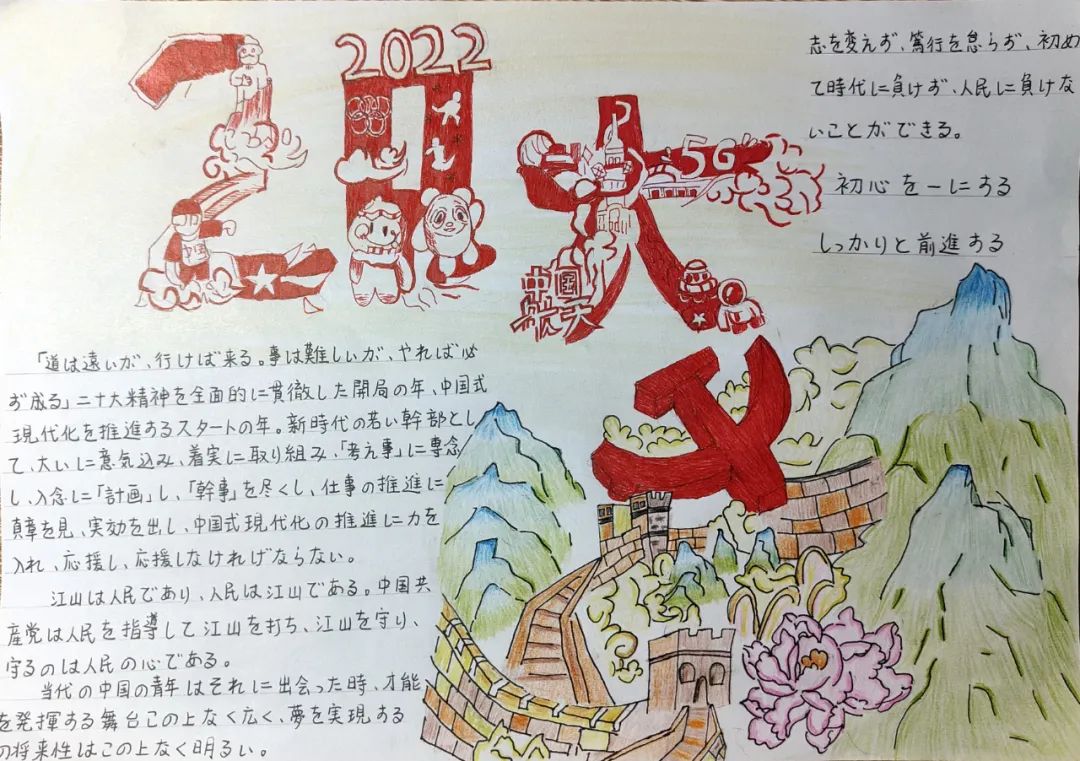 2022
二十大
中国
5G
中国
航天
志を変えず、篤行を怠らず、初め
て時代に負けず、人民に負けな
いことができる。
初心を一にする
しっかりと前進する
「道は遠いが、行けば来る。事は難しいが、やれば必
ず成る」二十大精神を全面的に貫徹した開局の年、中国式
現代化を推進するスタートの年。新時代の若い幹部とし
て、大いに意気込み、着実に取り組み、「考え事」に専念
し、入念に「計画」し、「幹事」を尽くし、仕事の推進に
真章を見、実効を出し、中国式現代化の推進に力を
入れ、応援し、応援しなければならない。
江山は人民であり、人民は江山である。中国共
産党は人民を指導して江山を打ち、江山を守り、
守るのは人民の心である。
当代の中国の青年はそれに出会った時、才能
を発揮する舞台この上なく広く、夢を実現する
の将来性はこの上なく明るい。